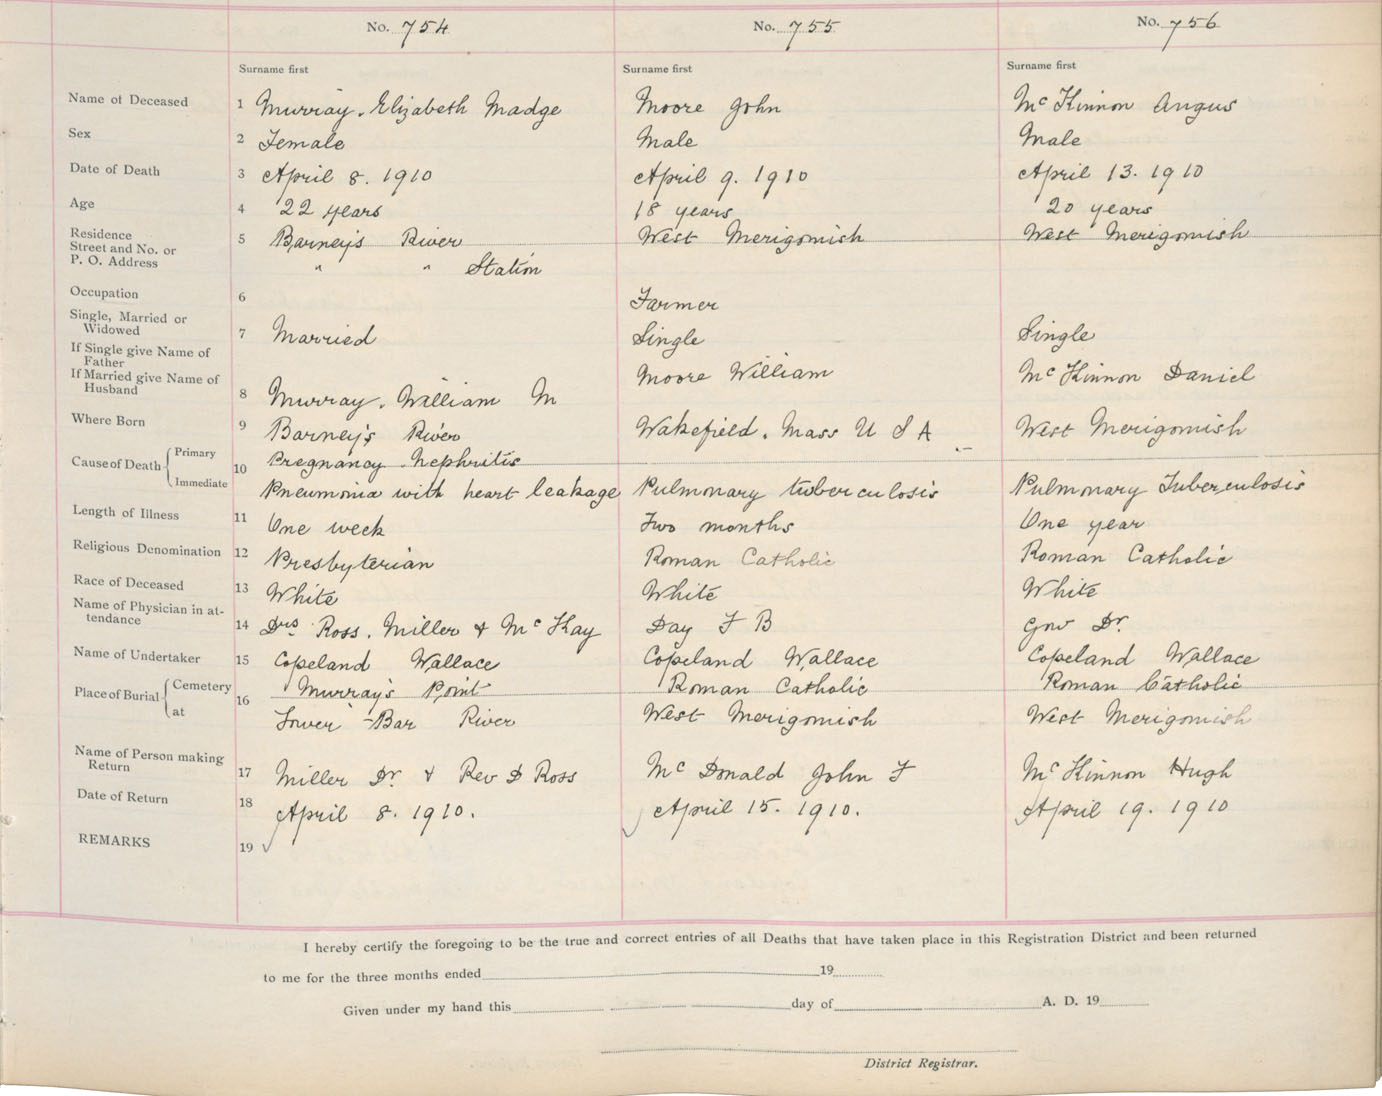 No. 754 No. 755 No. 756
Surname first Surname first Surname first
Name of Deceased 1 Murray. Elizabeth Madge Moore John McKinnon Angus
Sex 2 Female Male Male
Date of Death 3 April 8. 1910 April 9. 1910 April 13. 1910
Age 4 22 years 18 years 20 years
Residence
Street and No. or 5 Barney's River West Merigomish West Merigomish
P. O. Address " " Station
Occupation 6 Farmer
Single, Married or
Widowed 7 Married Single Single
If Single give Name of
Father Moore William McKinnon Daniel
If Married give Name of
Husband 8 Murray. William M
Where Born 9 Barney's River Wakefield. Mass U S A West Merigomish
Cause of Death { Primary 10 Pregnancy. Nephritis
Immediate Pneumonia with heart leakage Pulmonary tuberculosis Pulmonary Tuberculosis
Length of Illness 11 One week Two months One year
Religious Denomination 12 Presbyterian Roman Catholic Roman Catholic
Race of Deceased 13 White White White
Name of Physician in at-
tendance 14 Drs Ross. Miller & McKay Day F B Gov Dr.
Name of Undertaker 15 Copeland Wallace Copeland Wallace Copeland Wallace
Place of Burial { Cemetery 16 Murray's Point Roman Catholic Roman Catholic
at Lower Bar River West Merigomish West Merigomish
Name of Person making
Return 17 Miller Dr. & Rev D Ross McDonald John F McKinnon Hugh
Date of Return 18 April 8. 1910. April 15. 1910. April 19. 1910
REMARKS 19
I hereby certify the foregoing to be the true and correct entries of all Deaths that have taken place in this Registration District and been returned
to me for the three months ended 19
Given under my hand this day of A. D. 19
District Registrar.